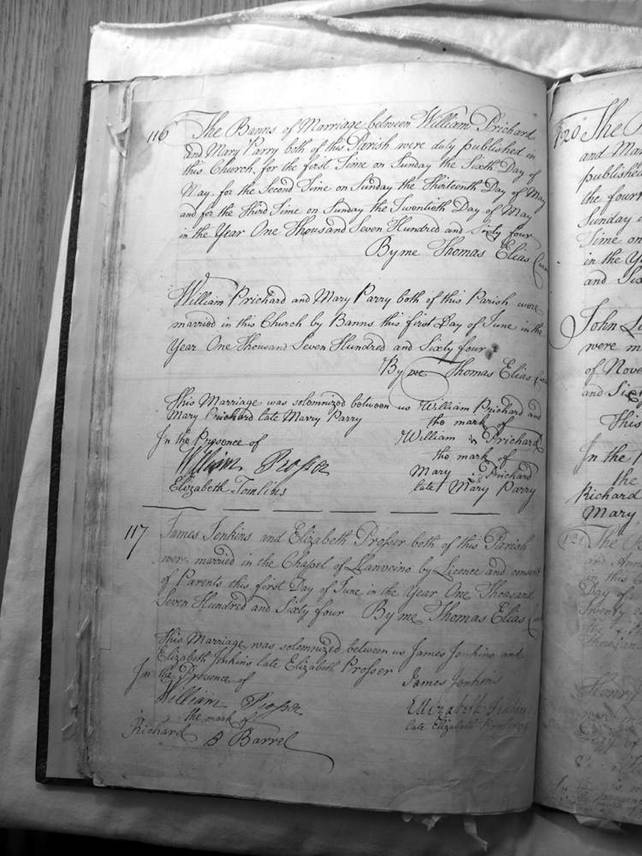 116 The Banns of Marriage between William Prichard
and Mary Parry both of this Parish were duly published in
this Church, for the first Time on Sunday the Sixth Day of
May, for the Second Time on Sunday the Thirteenth Day of May
and for the Third Time on Sunday the Twentieth Day of May
in the Year One Thousand Seven Hundred and Sixty four
By me Thomas Elias
William Prichard and Mary Parry both of this Parish were
married in this Church by Banns this first Day of June in the
Year One Thousand Seven Hundred and Sixty four
By me Thomas Elias
This Marriage was solemnized between us William Prichard and
Mary Prichard late Marry Parry
the mark of
In the Presence of
William Prichard
William Prosser
the mark of
Mary Prichard
Elizabeth Tomlins
late Mary Parry
117 James Jenkins and Elizabeth Prosser both of this Parish
were married in the Chappel of Llanveino by Licence and consent
of Parents this first Day of June in the Year One Thousand
Seven Hundred and Sixty four By me Thomas Elias
This Marriage was solemnized between us James Jenkins and
Elizabeth Jenkins late Elizabeth Prosser
In the Presence of
James Jenkins
William Prosser
Elizabeth
the mark of
late Elizabeth
Richard B Barrel
120 The
and Mar
published
the fourt
Sunday
Time on
in the Ye
and Six
John
were m
of Nove
and Six
This
In the P
the
Richard
Mary
121 The